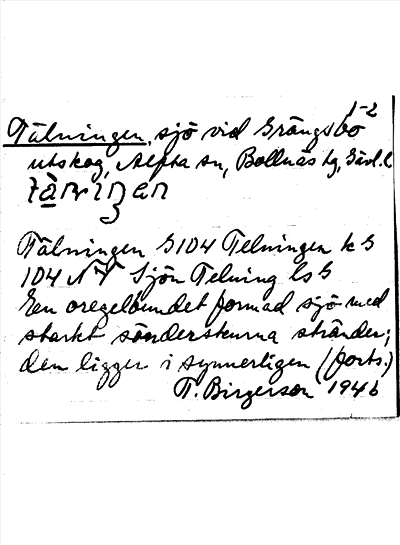 1-2
Tälningen, sjö vid Grängsbo
utskog, Alfta sn, Bollnäs tg, Gävl. l.
Tälningen G104 Telningen k G
104 Sjön Telning ls G
En oregelbundet formad sjö med
starkt sönderskurna stränder;
den ligger i synnerligen (forts.)
T. Birgerson 1946